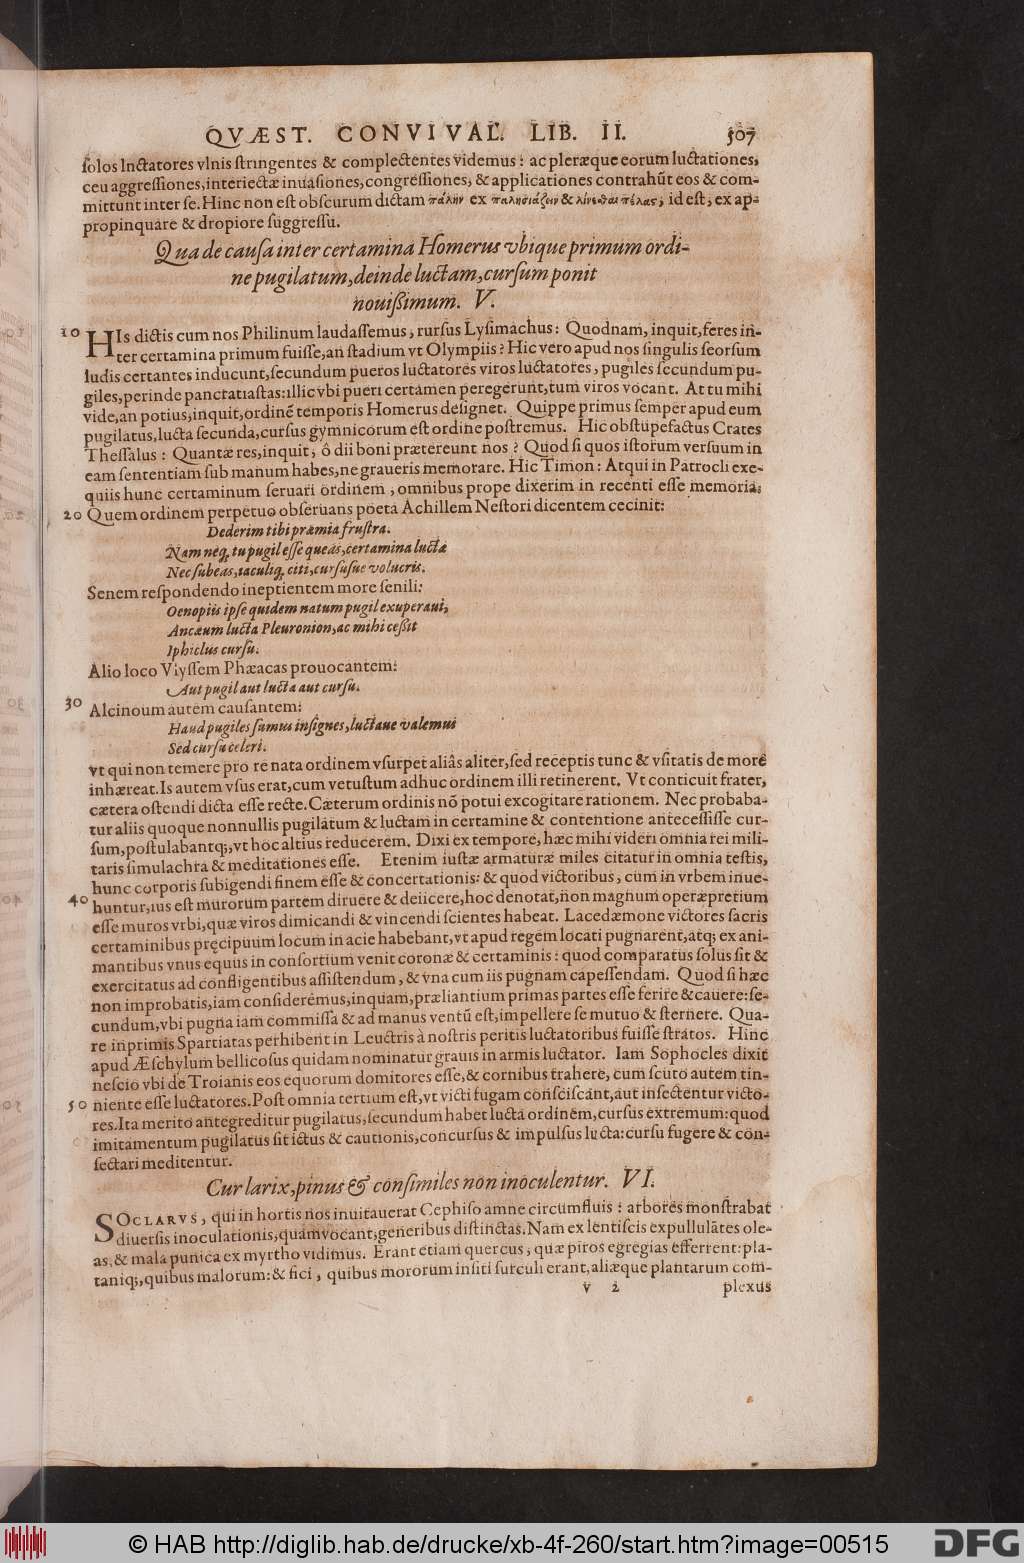 QVÆST. CONVIVAL. LIB. II. 507
solos luctatores vlnis stringentes & complectentes videmus: ac pleræque eorum luctationes,
ceu aggressiones, interiectæ inuasiones, congressiones, & applicationes contrahũt eos & com-
mittunt inter se. Hinc non est obscurum dictam πάλην ex & πέλας, id est, ex ap-
propinquare & dropiore suggressu.
Qua de causa inter certamina Homerus vbique primum ordi-
ne pugilatum, deinde luctam, cursum ponit
nouissimum. V.
10 HIs dictis cum nos Philinum laudassemus, rursus Lysimachus: Quodnam, inquit, feres in-
ter certamina primum fuisse, an stadium vt Olympiis? Hic vero apud nos singulis seorsum
ludis certantes inducunt, secundum pueros luctatores viros luctatores, pugiles secundum pu-
giles, perinde panctatiastas: illic vbi pueri certamen peregerunt, tum viros vocant. At tu mihi
vide, an potius, inquit, ordinẽ temporis Homerus designet. Quippe primus semper apud eum
pugilatus, lucta secunda, cursus gymnicorum est ordine postremus. Hic obstupefactus Crates
Thessalus: Quantæ res, inquit, ô dii boni prætereunt nos? Quod si quos istorum versuum in
eam sententiam sub manum habes, ne graueris memorare. Hic Timon: Atqui in Patrocli exe-
quiis hunc certaminum seruari ordinem, omnibus prope dixerim in recenti esse memoria;
20 Quem ordinem perpetuo obseruans poeta Achillem Nestori dicentem cecinit:
Dederim tibi præmia frustra.
Nam neq; tu pugil esse queas, certamina luctæ
Nec subeas, iaculiq; citi, cursusue volucris.
Senem respondendo ineptientem more senili:
Oenopiũ ipse quidem natum pugil exuperaui,
Ancæum lucta Pleuronion, ac mihi cessit
Iphiclus cursu.
Alio loco Vlyssem Phæacas prouocantem:
Aut pugil aut lucta aut cursu.
30 Alcinoum autem causantem:
Haud pugiles sumus insignes, luctaue valemus
Sed cursu celeri.
vt qui non temere pro re nata ordinem vsurpet aliâs aliter, sed receptis tunc & vsitatis de more
inhæreat. Is autem vsus erat, cum vetustum adhuc ordinem illi retinerent. Vt conticuit frater,
cætera ostendi dicta esse recte. Cæterum ordinis nõ potui excogitare rationem. Nec probaba-
tur aliis quoque nonnullis pugilatum & luctam in certamine & contentione antecessisse cur-
sum, postulabantq;, vt hoc altius reducerem. Dixi ex tempore, hæc mihi videri omnia rei mili-
taris simulachra & meditationes esse. Etenim iustæ armaturæ miles citatur in omnia testis,
hunc corporis subigendi finem esse & concertationis: & quod victoribus, cum in vrbem inue-
40 huntur, ius est murorum partem diruere & deiicere, hoc denotat, non magnum operæpretium
esse muros vrbi, quæ viros dimicandi & vincendi scientes habeat. Lacedæmone victores sacris
certaminibus pręcipuum locum in acie habebant, vt apud regem locati pugnarent, atq; ex ani-
mantibus vnus equus in consortium venit coronæ & certaminis: quod comparatus solus sit &
exercitatus ad confligentibus assistendum, & vna cum iis pugnam capessendam. Quod si hæc
non improbatis, iam consideremus, inquam, præliantium primas partes esse ferire & cauere: se-
cundum, vbi pugna iam commissa & ad manus ventũ est, impellere se mutuo & sternere. Qua-
re inprimis Spartiatas perhibent in Leuctris à nostris peritis luctatoribus fuisse stratos. Hinc
apud Æschylum bellicosus quidam nominatur grauis in armis luctator. Iam Sophocles dixit
nescio vbi de Troianis eos equorum domitores esse, & cornibus trahere, cum scuto autem tin-
50 niente esse luctatores. Post omnia tertium est, vt victi fugam consciscant, aut insectentur victo-
res. Ita merito antegreditur pugilatus, secundum habet lucta ordinem, cursus extremum: quod
imitamentum pugilatus sit ictus & cautionis, concursus & impulsus lucta: cursu fugere & con-
sectari meditentur.
Cur larix, pinus & consimiles non inoculentur. VI.
SOCLARVS, qui in hortis nos inuitauerat Cephiso amne circumfluis: arbores monstrabat
diuersis inoculationis, quam vocant, generibus distinctas. Nam ex lentiscis expullulãtes ole-
as, & mala punica ex myrtho vidimus. Erant etiam quercus, quæ piros egregias efferrent: pla-
taniq;, quibus malorum: & fici, quibus mororum insiti surculi erant, aliæque plantarum com-
v 2 plexus
© HAB http://diglib.hab.de/drucke/xb-4f-260/start.htm?image=00515 DFG